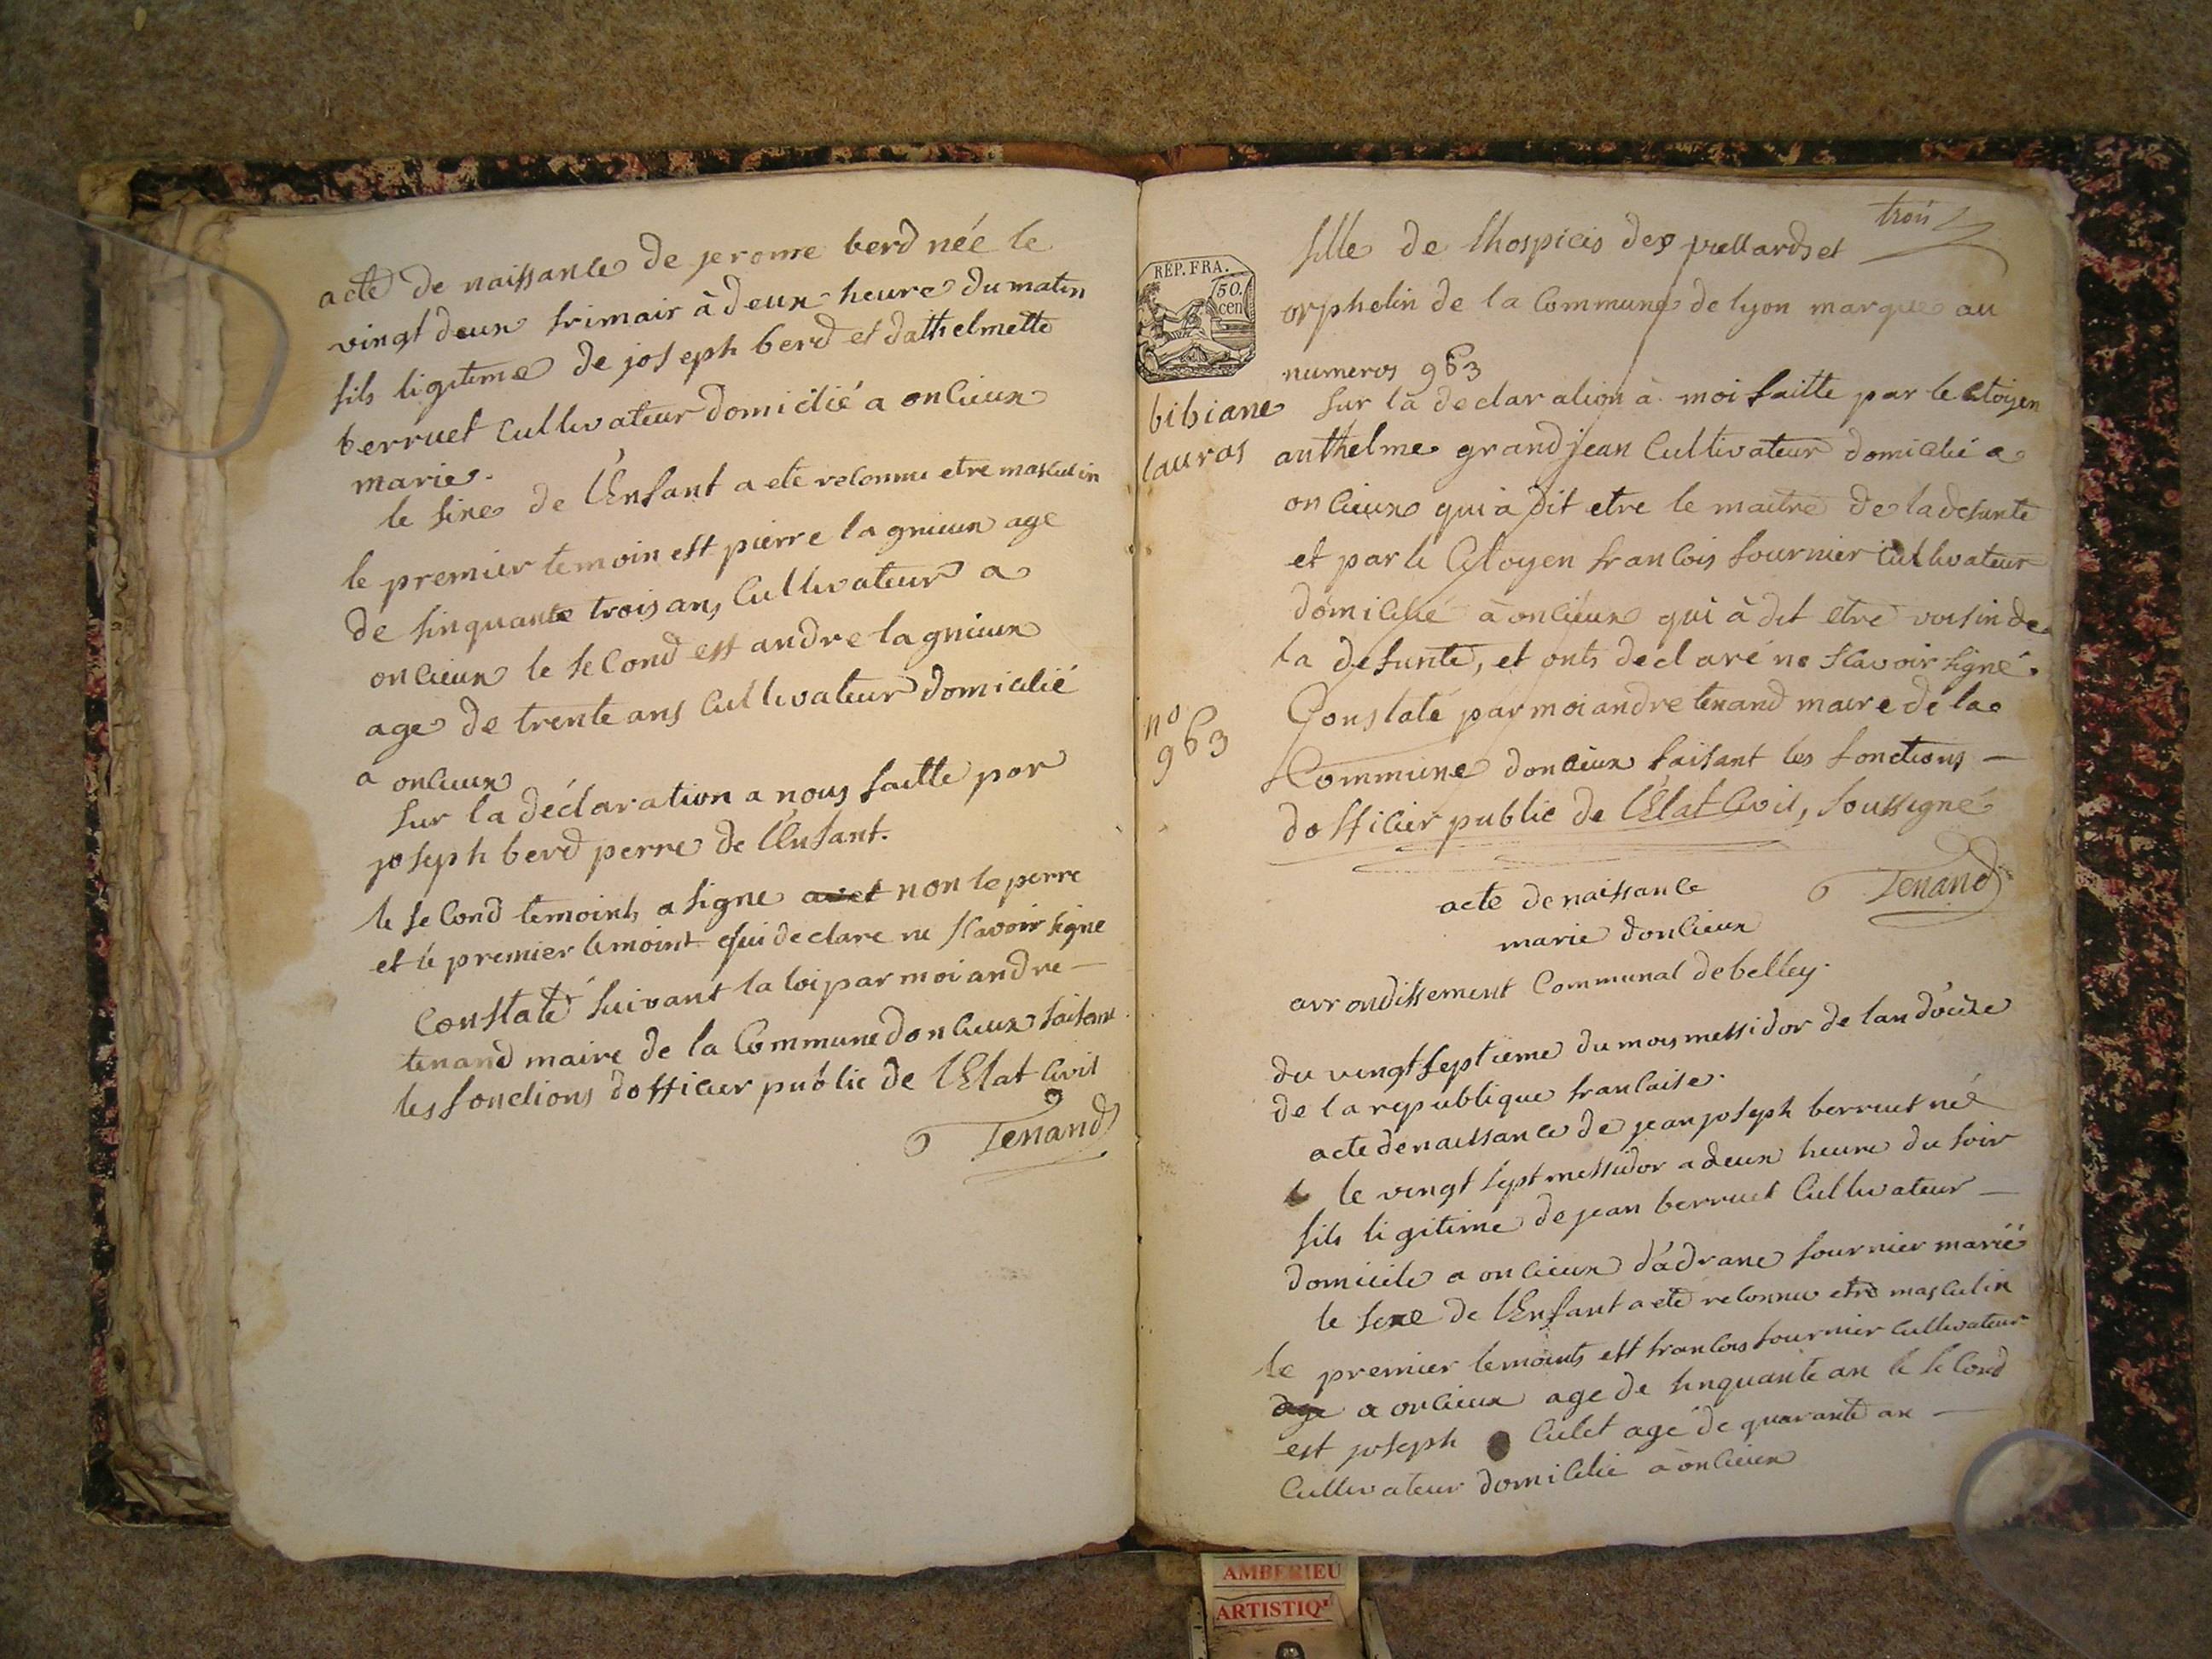 acte de naissance de jerome berd née le
vingt deux frimair à deux heure du matin
fils ligitime de joseph berd et dathelmette
berruet Cultivateur domicilié a oncieux
marie.
le sixe de l'Enfant a ete reconnu etre masculin
le premier temoin est pierre lagnieux age
de sinquante trois ans Cultivateur a
oncieux le second est andre lagnieux
age de trente ans Cultivateur domicilié
a oncieux
sur la déclaration a nous faitte par
joseph berd perre de l'Enfant.
le second temoints a signe non le perre
et le premier temoint qui declare ne scavoir signe
Constaté suivant la loi par moi andre
tenand maire de la Commune doncieux faisant
les fonctions dofficier public de lEtat Civil
Tenand
trois
fille de lhospicis des viellards et
REP. FRA.
50. cen
orphelin de la Commune de lyon marque au
numeros 963
bibiane
lauras
sur la declaration à moi faitte par le Citoyen
anthelme grandjean Cultivateur domicilié a
oncieux qui à dit etre le maitre de la defunte
et par le Citoyen francois fournier Cultivateur
domicilié à oncieux qui à dit etre voisin de
la defunte, et onts declaré ne scavoir signé.
no
963
Constaté par moi andre tenand maire de la
Commune doncieux faisant les fonctions —
dofficier public de l'Etat Civil, soussigné
Tenand
acte de naissance
marie doncieux
arrondissement Communal de belley.
du vingt septieme du mois messidor de lan douze
de la republique francaise.
acte de naissance de jean joseph berruet né
le vingt sept messidor a deux heure du soir
fils ligitime de jean berruet Cultivateur —
domicile a oncieux d'adrane fournier marié
le sexe de l'Enfant a eté reconnu etre masculin
le premier temoints est francois fournier cultivateur
age a oncieux age de sinquante an le second
est joseph Culet agé de quarante an —
Cultivateur domicilié à oncieux
AMBERIEU
ARTISTIQ